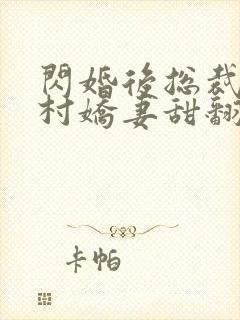 閃婚後總裁
村嬌妻甜翻
卡帕